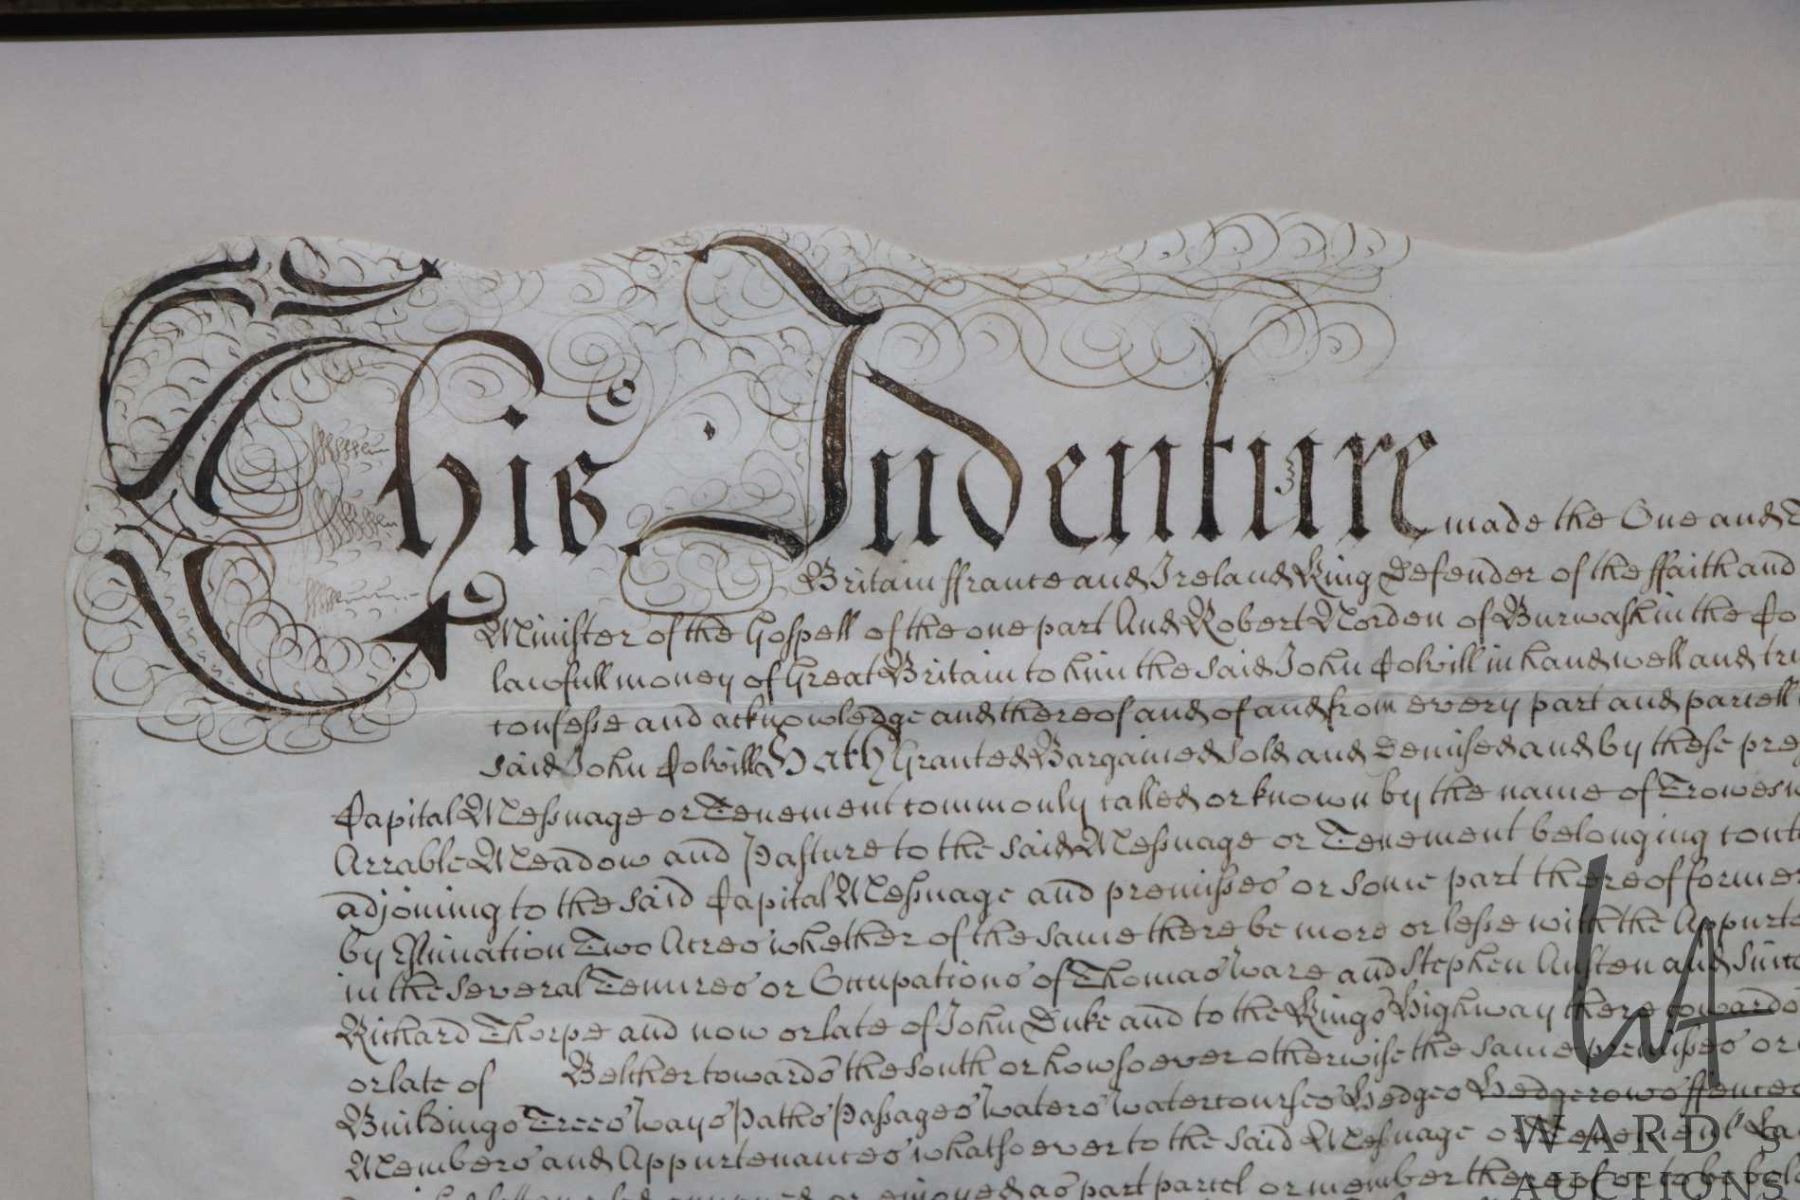 This Indenture made the One and
Britain ffrance and Ireland King Defender of the ffaith and
Minister of the Gospell of the one part And Robert Norden of Burwash in the Co
lawfull money of Great Britain to him the said John Colvill in hand well and tru
confesse and acknowledge and thereof and of and from every part and parcell
said John Colvill Hath Granted Bargained Sold and Demised and by these pre
Capital Messuage or Tenement commonly called or known by the name of
Arrable Meadow and Pasture to the said Messuage or Tenement belonging cont
adjoining to the said Capital Messuage and premisses or some part thereof former
by Estimation Two Acres whether of the same there be more or lesse with the Appurte
in the severall Tenures or Occupations of Thomas Ware and Stephen Austen and
Richard Thorpe and now or late of John Duke and to the Kings Highway there towards
or late of Belcher towards the South or howsoever otherwise the same premisses or
Buildings Trees Ways Paths Passages Waters Watercourses Hedges Hedgerows ffences
Members and Appurtenances whatsoever to the said Messuage or Tenement La
enjoyed as part parcel or member thereof or to be
WARD'S
AUCTIONS